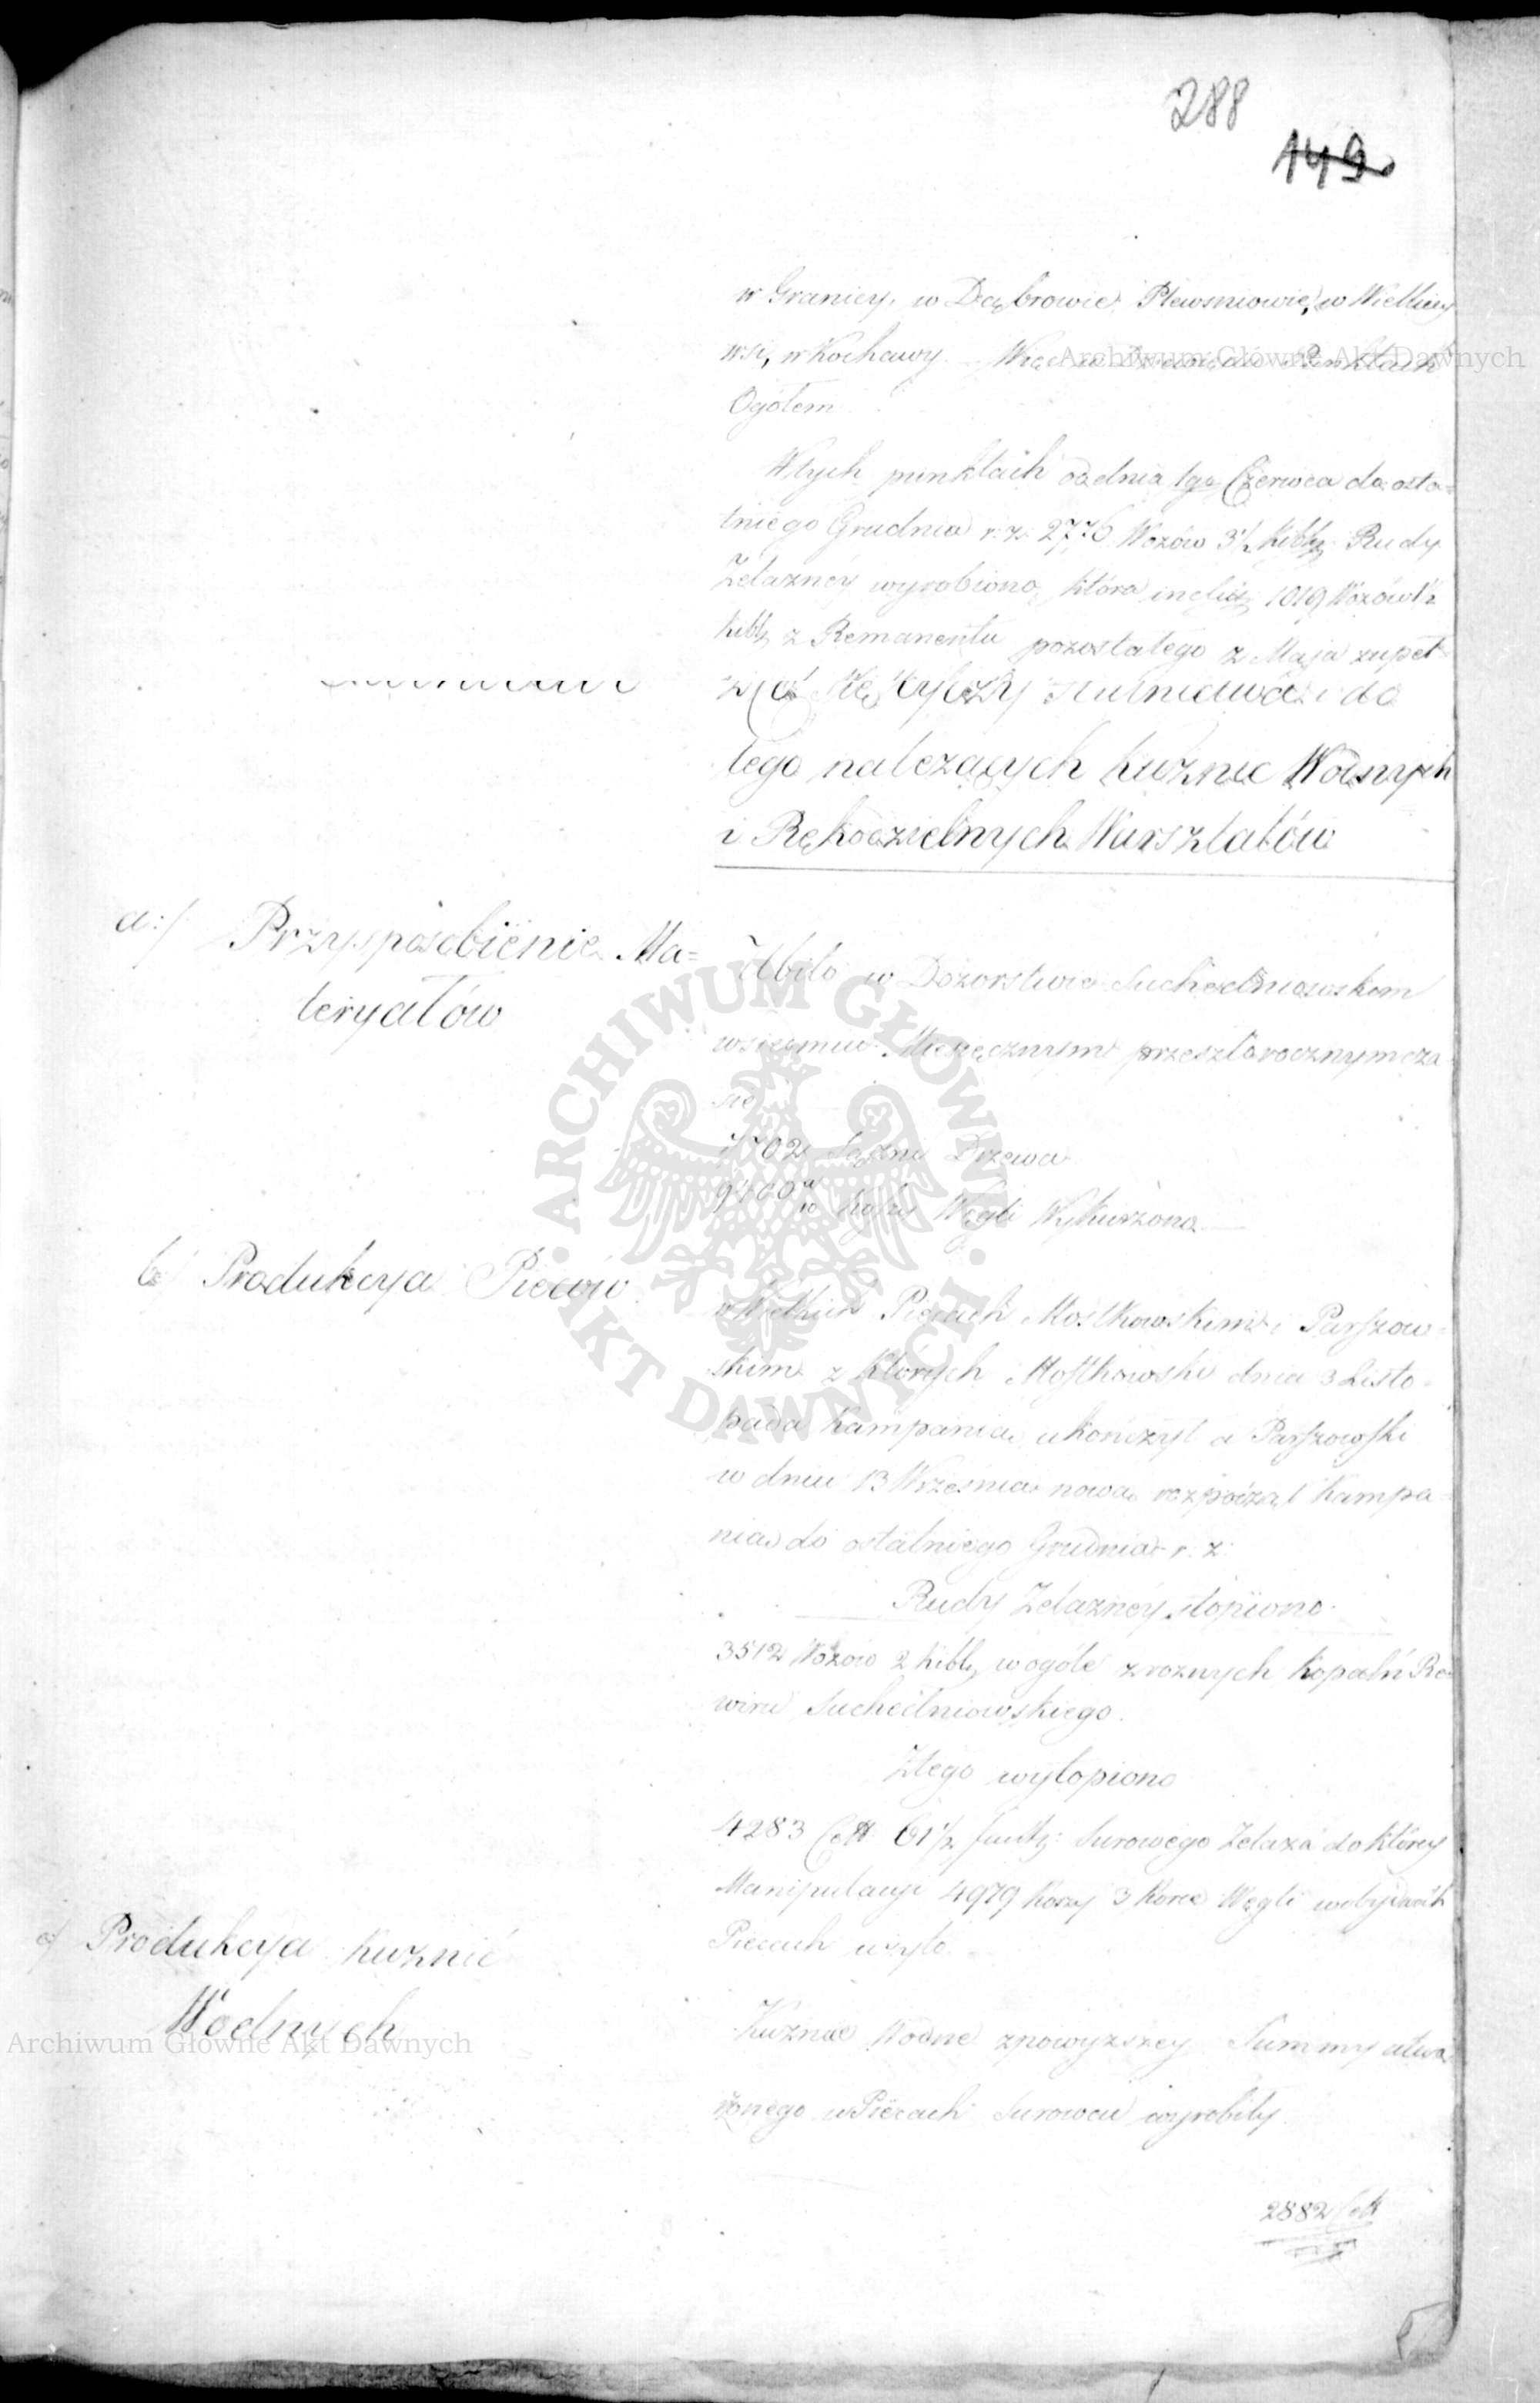 288
149
w Granicy, w Dąbrowie, Plewniowie, w Wielkiey
wsi, w Kochawy. Więc w Punktach
Ogółem
W tych punktach od dnia 1go Czerwca do osta=
tniego Grudnia r. z. 2776 Wozów 3½ Kibły Rudy
Żelazney wyrobiono, która inclus. 1019 Wozów
Kibł. z Remanentu pozostałego z Maja zupeł
do
tego należących Kuźnic Wodnych
i Rękodzielnych Warsztatów
a:/ Przysposobienie Ma=
teryałów
Ubito w Dozorstwie Suchedniowskom
Miesięcznym przeszłorocznym cza
sie
7702 Sążni Drzewa
Węgli Wykurzono
b/ Produkcya Pieców
w Wielkich Piecach Mostkowskim i Parszow=
skim z których Mostkowski dnia 3 Listo=
pada Kampanią ukończył a Parszowski
w dniu 13 Września nową rozpoczął Kampa=
nią do ostatniego Grudnia r. z.
Rudy Żelazney stopiono
3512 Wozów 2 Kibł. w ogóle z roznych Kopalń Re=
wiru Suchedniowskiego.
Z tego wytopiono
4283 Cett. 61½ funt. Surowego Żelaza do którey
Manipulacyi 4979 Koszy 3 Korce Węgli w obydwóch
Piecach użyto.
c/ Produkcya Kuźnic
Wodnych
Kuźnice Wodne z powyższey Summy utwo
rzonego w Piecach Surowcu wyrobiły
2882 Cett
Archiwum Główne Akt Dawnych
Archiwum Główne Akt Dawnych
ARCHIWUM GŁÓWNE
AKT DAWNYCH